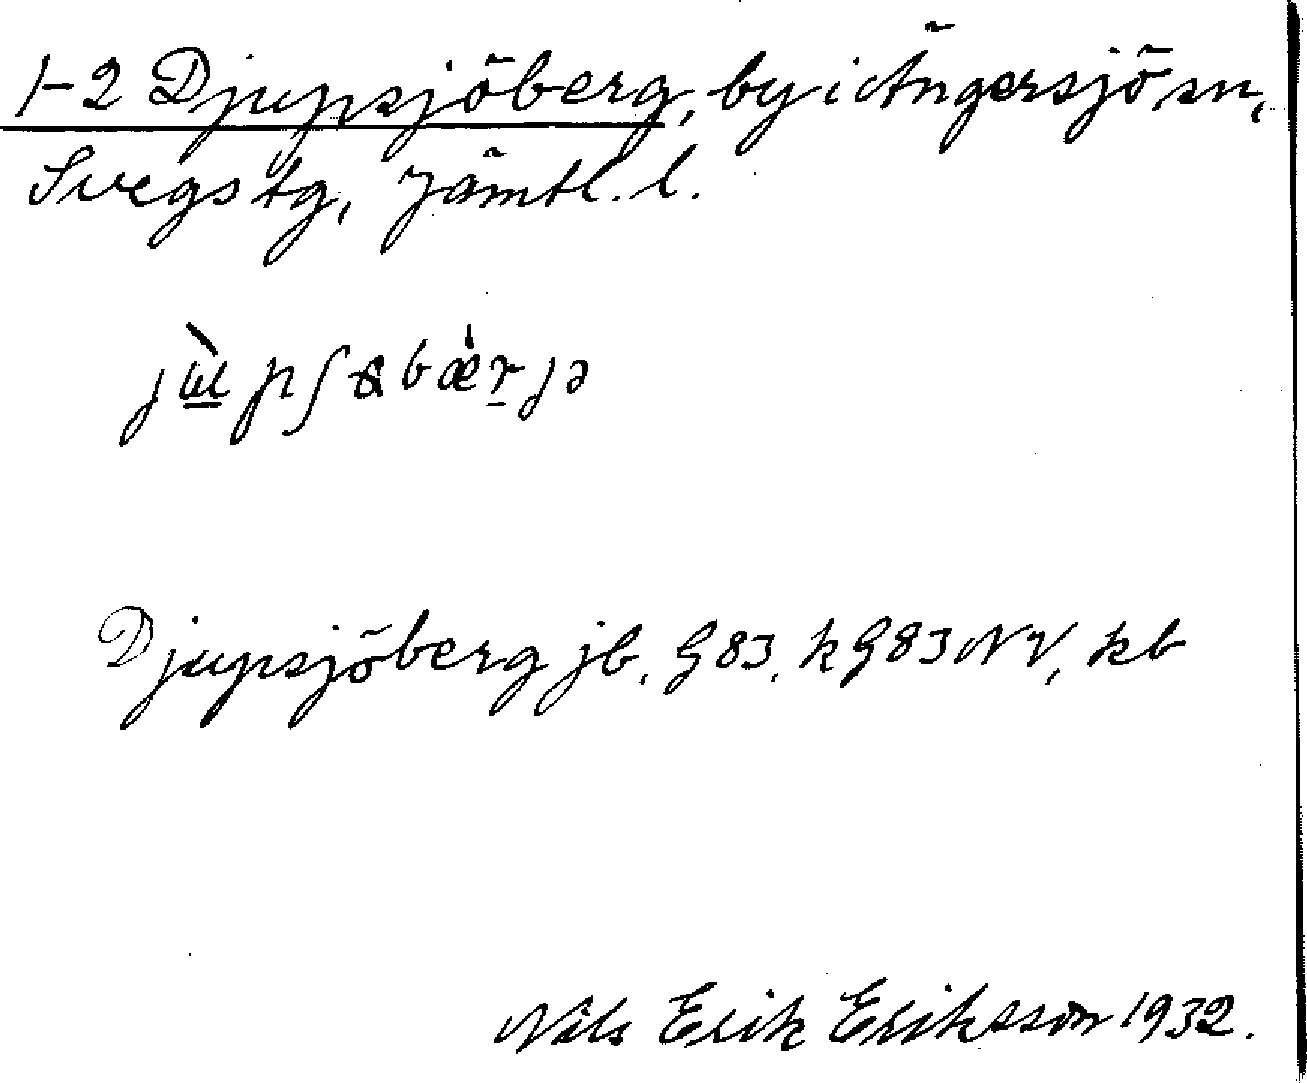 1-2 Djupsjöberg, by i Ängersjö sn,
Svegs tg, Jämtl. l.
Djupsjöberg jb. G 83. k G 83 NV, kb
Nils Erik Eriksson 1932.